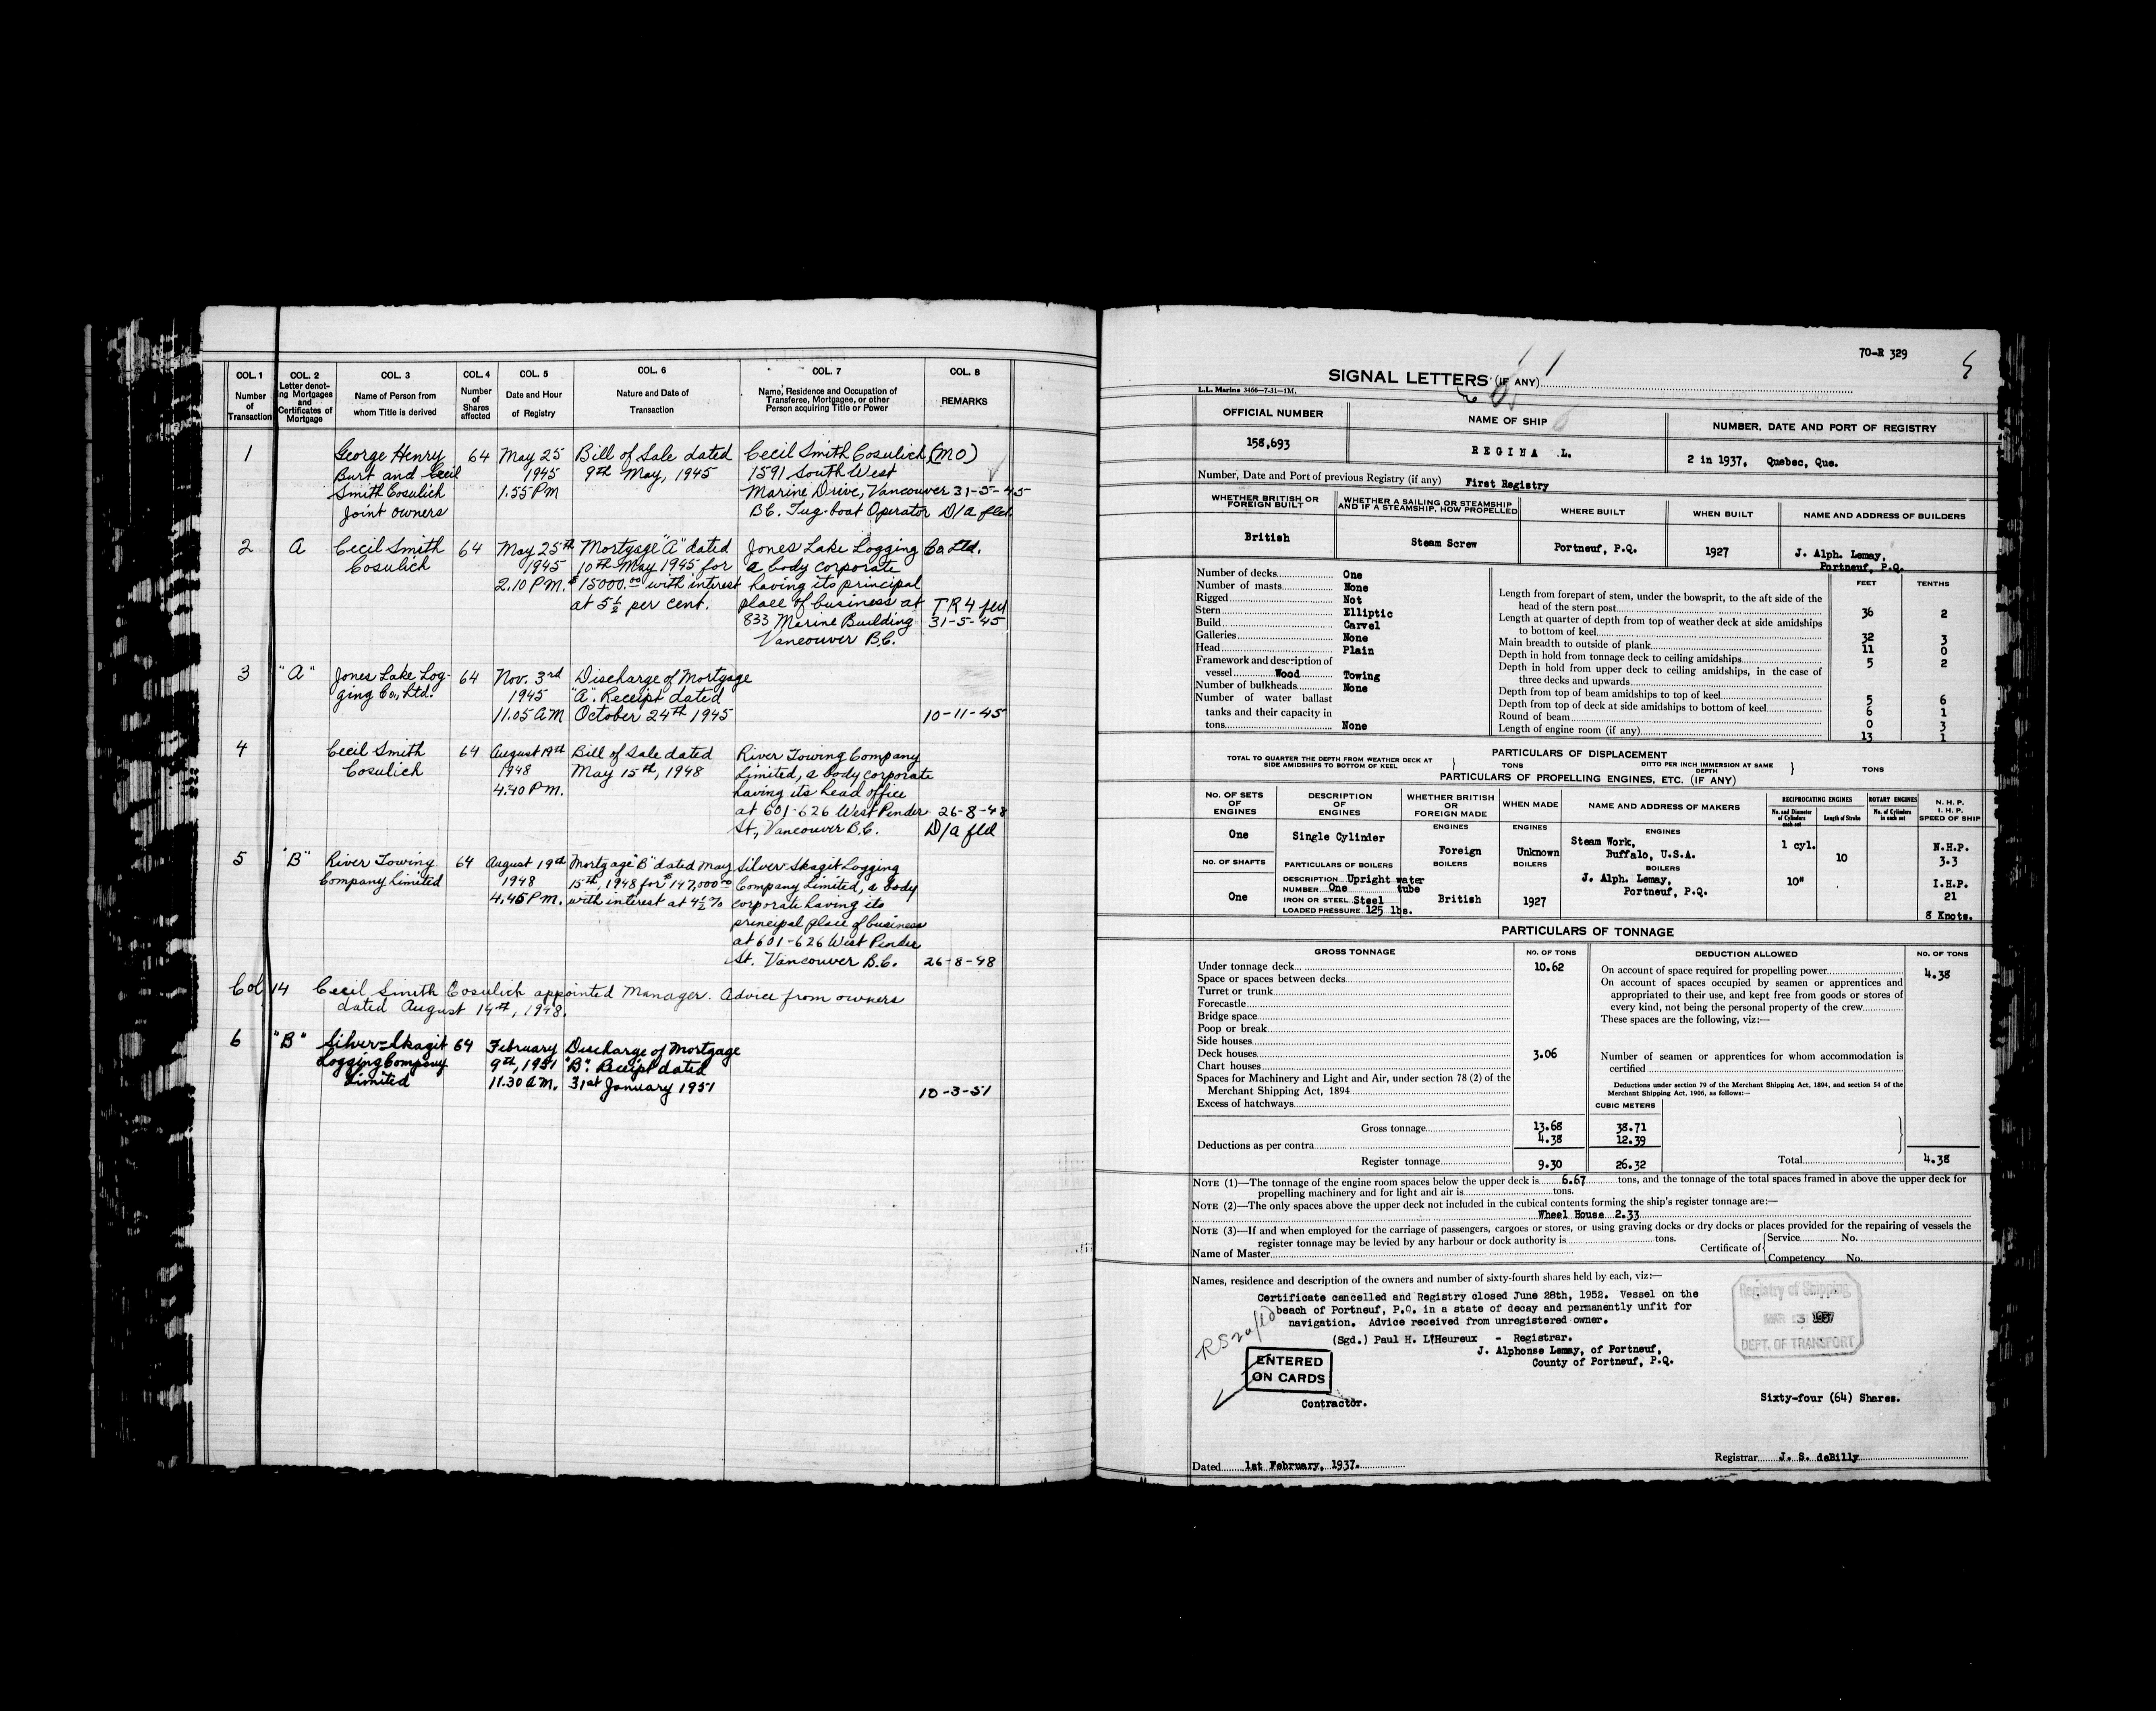 COL. 1 COL. 2 COL. 3 COL. 4 COL. 5 COL. 6 COL. 7 COL. 8
Number of Transaction
Letter denoting Mortgages and Certificates of Mortgage
Name of Person from whom Title is derived
Number of Shares affected
Date and Hour of Registry
Nature and Date of Transaction
Name, Residence and Occupation of Transferee, Mortgagee, or other Person acquiring Title or Power
REMARKS
1 George Henry 64 May 25 Bill of Sale dated Cecil Smith Cosulich (MO)
Burt and Cecil 1945 9th May, 1945 1591 South West
Smith Cosulich 1.55 PM Marine Drive, Vancouver 31-5-45
Joint owners B.C. Tug-boat Operator D/a fld.
2 A Cecil Smith 64 May 25th Mortgage "A" dated Jones Lake Logging Co. Ltd.
Cosulich 1945 10th May 1945 for a body corporate
2.10 P.M. $15000.00 with interest having its principal
at 5½ per cent. place of business at TR4 fld
833 Marine Building 31-5-45
Vancouver B.C.
3 "A" Jones Lake Log- 64 Nov. 3rd Discharge of Mortgage
ging Co, Ltd. 1945 "A". Receipt dated
11.05 AM October 24th 1945 10-11-45
4 Cecil Smith 64 August 19th Bill of Sale dated River Towing Company
Cosulich 1948 May 15th, 1948 Limited, a body corporate
4.40 P.M. having its head office
at 601-626 West Pender 26-8-48
St., Vancouver B.C. D/a fld
5 "B" River Towing 64 August 19th Mortgage "B" dated May Silver-Skagit Logging
Company Limited 1948 15th, 1948 for $147,000.00 Company Limited, a body
4.45 P.M. with interest at 4½% corporate having its
principal place of business
at 601-626 West Pender
St. Vancouver B.C. 26-8-48
Col 14 Cecil Smith Cosulich appointed Manager. Advice from owners
dated August 14th, 1948.
6 "B" Silver-Skagit 64 February Discharge of Mortgage
Logging Company 9th, 1951 "B". Receipt dated
Limited 11.30 A.M. 31st January 1951 10-3-51
70-R 329
SIGNAL LETTERS (IF ANY)
L.L. Marine 3466—7-31—1M.
OFFICIAL NUMBER NAME OF SHIP NUMBER, DATE AND PORT OF REGISTRY
158,693 REGINA L. 2 in 1937, Quebec, Que.
Number, Date and Port of previous Registry (if any) First Registry
WHETHER BRITISH OR FOREIGN BUILT
WHETHER A SAILING OR STEAMSHIP AND IF A STEAMSHIP, HOW PROPELLED
WHERE BUILT WHEN BUILT NAME AND ADDRESS OF BUILDERS
British Steam Screw Portneuf, P.Q. 1927 J. Alph. Lemay,
Portneuf, P.Q.
Number of decks One
Number of masts None
Rigged Not
Stern Elliptic
Build Carvel
Galleries None
Head Plain
Framework and description of
vessel Wood Towing
Number of bulkheads None
Number of water ballast
tanks and their capacity in
tons None
FEET TENTHS
Length from forepart of stem, under the bowsprit, to the aft side of the
head of the stern post 36 2
Length at quarter of depth from top of weather deck at side amidships
to bottom of keel 32 3
Main breadth to outside of plank 11 0
Depth in hold from tonnage deck to ceiling amidships 5 2
Depth in hold from upper deck to ceiling amidships, in the case of
three decks and upwards
Depth from top of beam amidships to top of keel 5 6
Depth from top of deck at side amidships to bottom of keel 6 1
Round of beam 0 3
Length of engine room (if any) 13 1
PARTICULARS OF DISPLACEMENT
TOTAL TO QUARTER THE DEPTH FROM WEATHER DECK AT SIDE AMIDSHIPS TO BOTTOM OF KEEL } TONS DITTO PER INCH IMMERSION AT SAME DEPTH } TONS
PARTICULARS OF PROPELLING ENGINES, ETC. (IF ANY)
NO. OF SETS OF ENGINES
DESCRIPTION OF ENGINES
WHETHER BRITISH OR FOREIGN MADE
WHEN MADE
NAME AND ADDRESS OF MAKERS
RECIPROCATING ENGINES
No. and Diameter of Cylinders each set
Length of Stroke
ROTARY ENGINES
No. of Cylinders in each set
N.H.P. I.H.P. SPEED OF SHIP
ENGINES ENGINES ENGINES
One Single Cylinder Foreign Unknown Steam Work,
Buffalo, U.S.A. 1 cyl. 10 N.H.P.
3.3
NO. OF SHAFTS PARTICULARS OF BOILERS BOILERS BOILERS BOILERS
One DESCRIPTION Upright water
NUMBER One tube
IRON OR STEEL Steel
LOADED PRESSURE 125 lbs.
British 1927 J. Alph. Lemay,
Portneuf, P.Q. 10"
I.H.P.
21
8 Knots.
PARTICULARS OF TONNAGE
GROSS TONNAGE NO. OF TONS DEDUCTION ALLOWED NO. OF TONS
Under tonnage deck 10.62
Space or spaces between decks
Turret or trunk
Forecastle
Bridge space
Poop or break
Side houses
Deck houses 3.06
Chart houses
Spaces for Machinery and Light and Air, under section 78 (2) of the
Merchant Shipping Act, 1894
Excess of hatchways
Gross tonnage 13.68 38.71
Deductions as per contra 4.38 12.39
Register tonnage 9.30 26.32
On account of space required for propelling power 4.38
On account of spaces occupied by seamen or apprentices and
appropriated to their use, and kept free from goods or stores of
every kind, not being the personal property of the crew
These spaces are the following, viz:—
Number of seamen or apprentices for whom accommodation is
certified
Deductions under section 79 of the Merchant Shipping Act, 1894, and section 54 of the
Merchant Shipping Act, 1906, as follows:—
CUBIC METERS
Total 4.38
NOTE (1)—The tonnage of the engine room spaces below the upper deck is 6.67 tons, and the tonnage of the total spaces framed in above the upper deck for
propelling machinery and for light and air is tons.
NOTE (2)—The only spaces above the upper deck not included in the cubical contents forming the ship's register tonnage are:—
Wheel House 2.33
NOTE (3)—If and when employed for the carriage of passengers, cargoes or stores, or using graving docks or dry docks or places provided for the repairing of vessels the
register tonnage may be levied by any harbour or dock authority is tons.
Name of Master Certificate of { Service No.
Competency No.
Names, residence and description of the owners and number of sixty-fourth shares held by each, viz:—
Certificate cancelled and Registry closed June 28th, 1952. Vessel on the
beach of Portneuf, P.Q. in a state of decay and permanently unfit for
navigation. Advice received from unregistered owner.
(Sgd.) Paul H. L'Heureux - Registrar.
J. Alphonse Lemay, of Portneuf,
County of Portneuf, P.Q.
Registry of Shipping
MAR 13 1937
DEPT. OF TRANSPORT
ENTERED
ON CARDS
Contractor.
Sixty-four (64) Shares.
Dated 1st February, 1937. Registrar J. S. deBilly